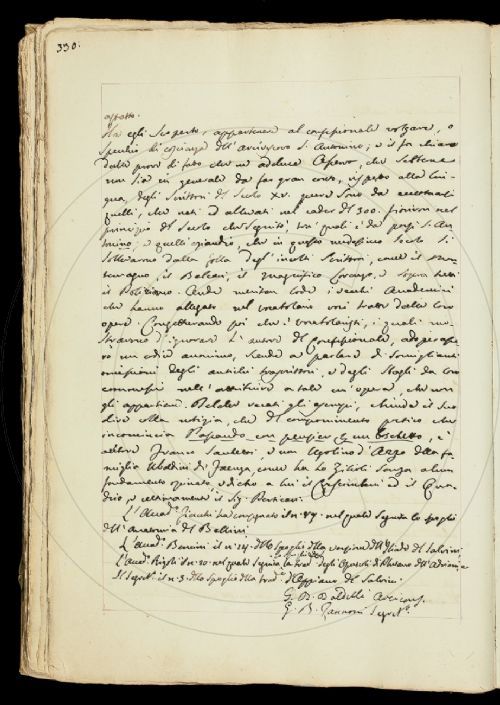 330.
appartenere al confessionale volgare, o
Specchio di coscienza dell'Arcivescovo S. Antonino; e il fa chiaro
dalle prove di fatto che ne adduce. che sebbene
non sia in generale da far gran conto, rispetto alla lin-
gua, degli Scrittori del Secolo XV. pure sono da eccettuarsi
quelli, che nati ed allevati nel cader del 300. fiorirono nel
principio del Secolo che seguitò, tra' quali è da porsi S. An-
tonino, e quelli eziandio, che in questo medesimo Secolo si
sollevarono dalla folla degl'inculti Scrittori, come il
il Belcari, il Magnifico Lorenzo, e sopra tutti
il Poliziano. Onde meritan lode i vecchi Accademici
che hanno allegato nel vocabolario voci tratte dalle loro
opere. Congetturando poi che i vocabolaristi, i quali mo-
strarono d'ignorare l'autore del Confessionale, adoperasse-
ro un codice anonimo, scende a parlare di somiglianti
omissioni degli antichi trascrittori, e degli sbagli da loro
commessi nell'attribuire a tale un'opera, che non
gli appartiene. recati gli esempj, chiude il suo
dire colla notizia, che del componimento poetico che
incomincia Passando con pensier per un boschetto, è
autore Franco Sacchetti, e non Ugolino d'Azzo della fa-
miglia Ubaldini di Faenza, come ha lo Zilioli senza alcun
fondamento opinato, e dietro a lui il Crescimbeni ed il Qua-
drio, e ultimamente il Sig. Perticari.
L'Accad.º Fiacchi ha consegnato il n. 47. nel quale seguita lo spoglio
dell'Anatomia del Bellini.
L'Accad.º Bencini il n. 14. dello spoglio della versione dell'Iliade del Salvini.
L'Accad.º Rigoli il n. 20. nel quale seguita degli Opuscoli di Plutarco dell'Adriani.
Il Segret.º il n. 3. dello spoglio della trad.e d'Oppiano del Salvini.
G. B. Baldelli Arcicons.
G. B. Zannoni Segret.º